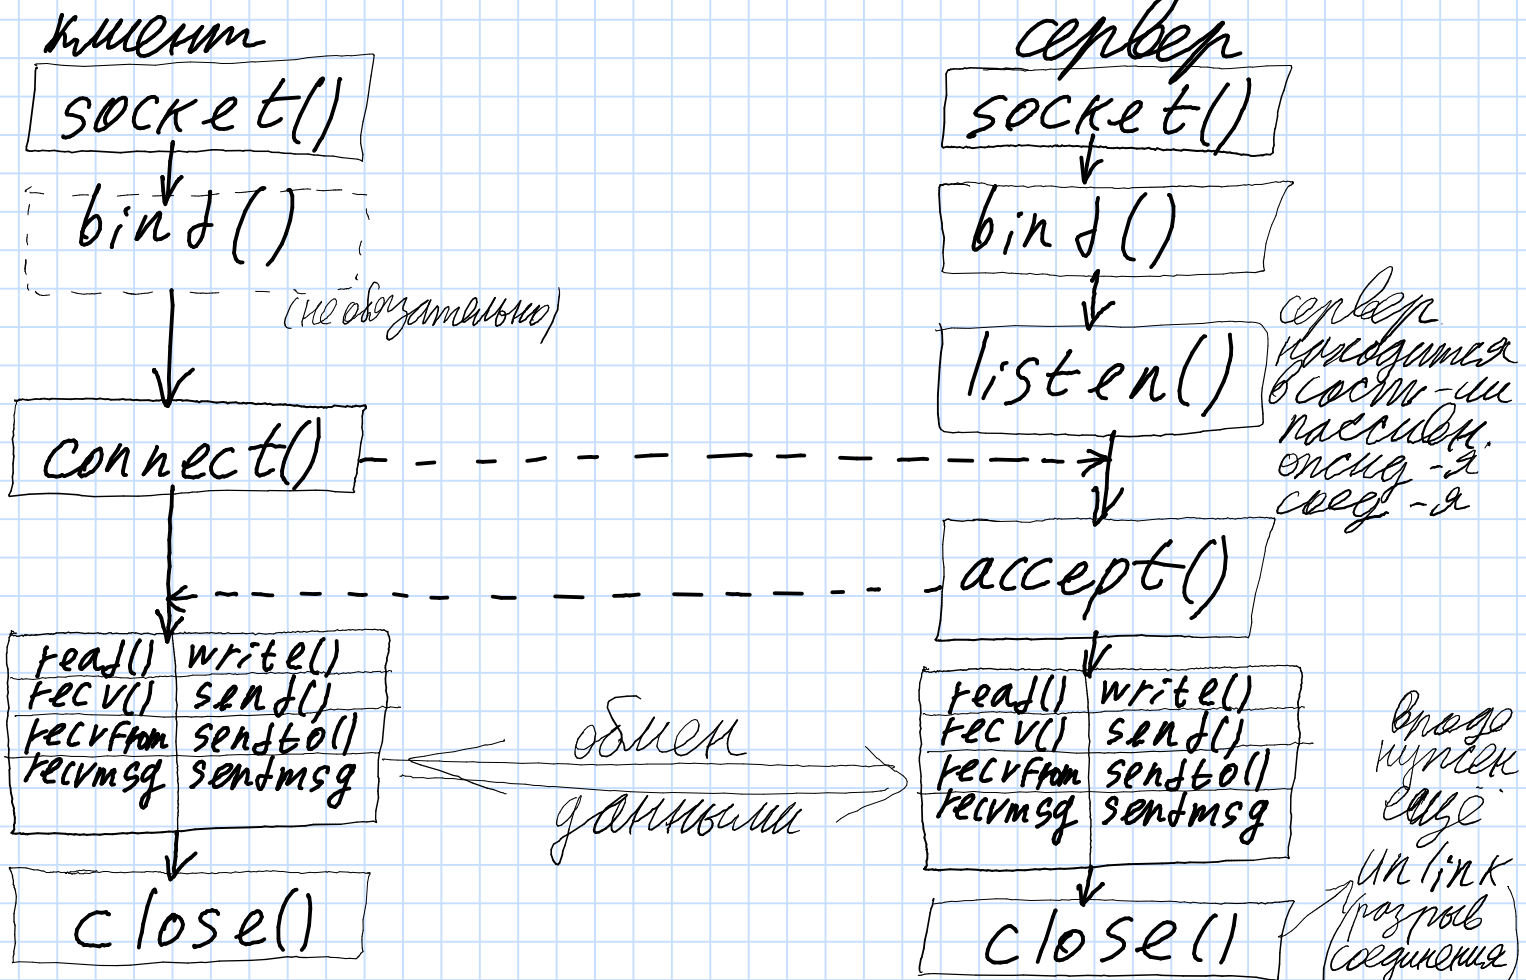 клиент
socket()
bind()
(необязательно)
connect()
read() write()
recv() send()
recvfrom sendto()
recvmsg sendmsg
close()
обмен
данными
сервер
socket()
bind()
listen()
сервер
находится
в сост-ии
пассивн.
ожид-я
соед-я
accept()
read() write()
recv() send()
recvfrom sendto()
recvmsg sendmsg
close()
вроде
нужен
ещё
unlink
(разрыв
соединения)